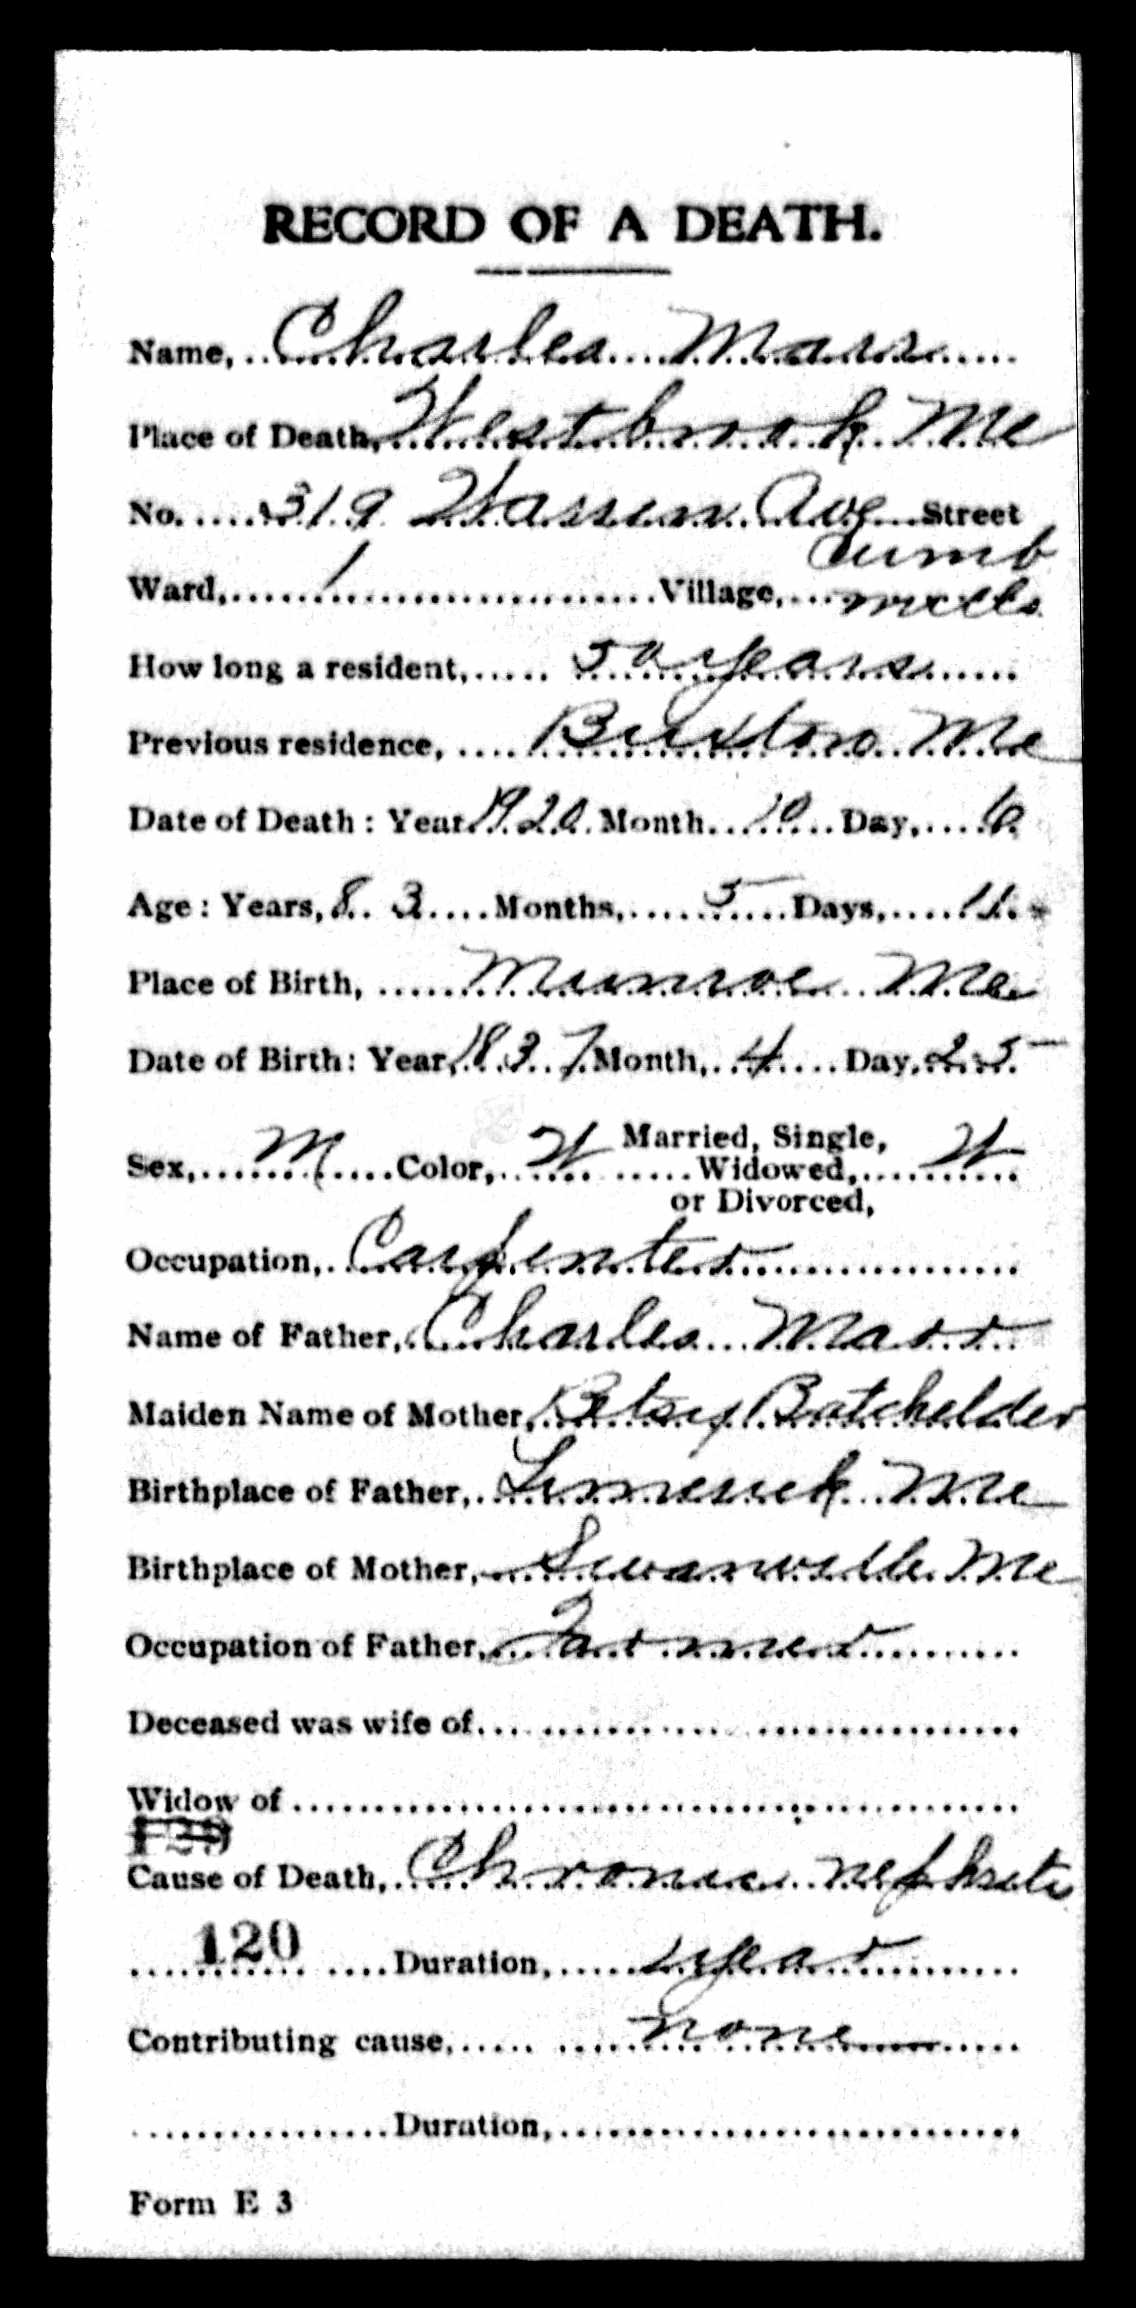 RECORD OF A DEATH.
Name, Charles Marr
Place of Death, Westbrook Me
No. 319 Warren Ave Street
Ward, 1 Village, Cumb Mills
How long a resident, 50 years
Previous residence, Buxton Me
Date of Death: Year 1920 Month 10 Day, 6
Age: Years, 83 Months, 5 Days, 11
Place of Birth, Munroe Me
Date of Birth: Year, 1837 Month, 4 Day, 25
Sex, M Color, W Married, Single, Widowed, or Divorced, W
Occupation, Carpenter
Name of Father, Charles Marr
Maiden Name of Mother, Betsey Batchelder
Birthplace of Father, Limerick Me
Birthplace of Mother, Swanville Me
Occupation of Father, Farmer
Deceased was wife of
Widow of
129
Cause of Death, Chronic nephritis
120 Duration, 1 year
Contributing cause, none
Duration,
Form E 3